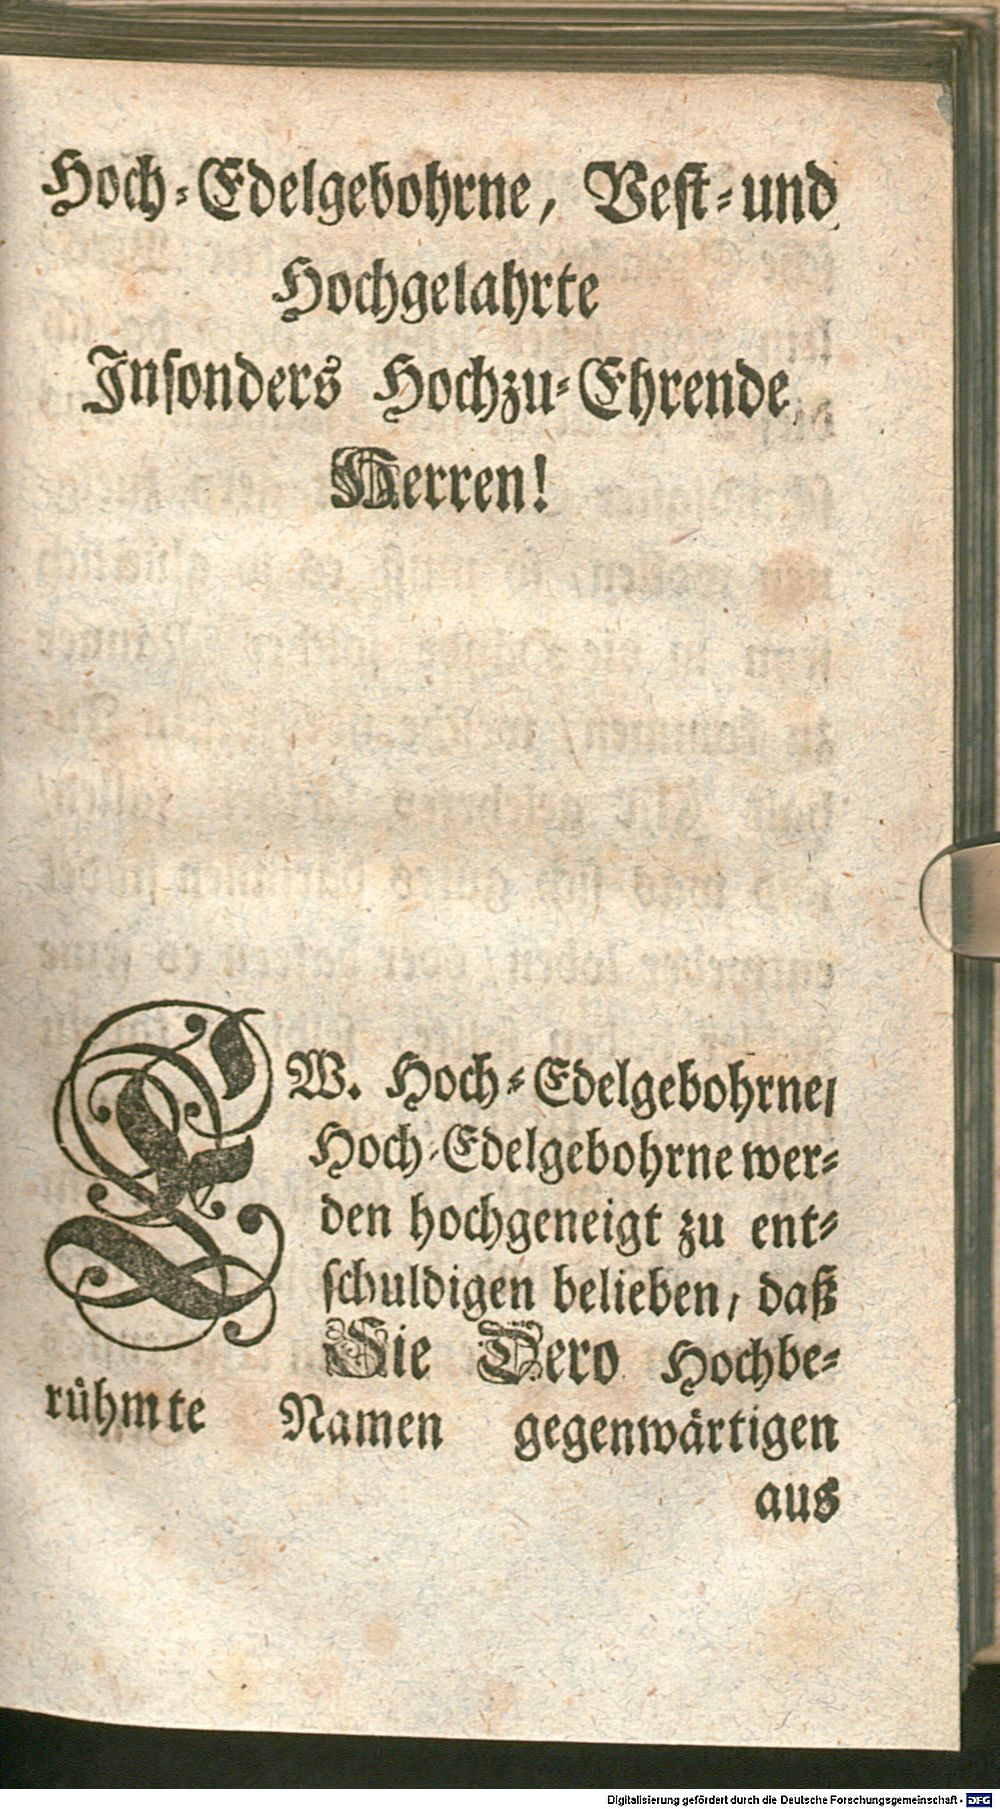 Hoch-Edelgebohrne, Vest-und
Hochgelahrte
Insonders Hochzu-Ehrende
Herren!
EW. Hoch-Edelgebohrne/
Hoch-Edelgebohrne wer-
den hochgeneigt zu ent-
schuldigen belieben, daß
Sie Dero Hochbe-
rühmte Namen gegenwärtigen
aus
Digitalisierung gefördert durch die Deutsche Forschungsgemeinschaft - DFG